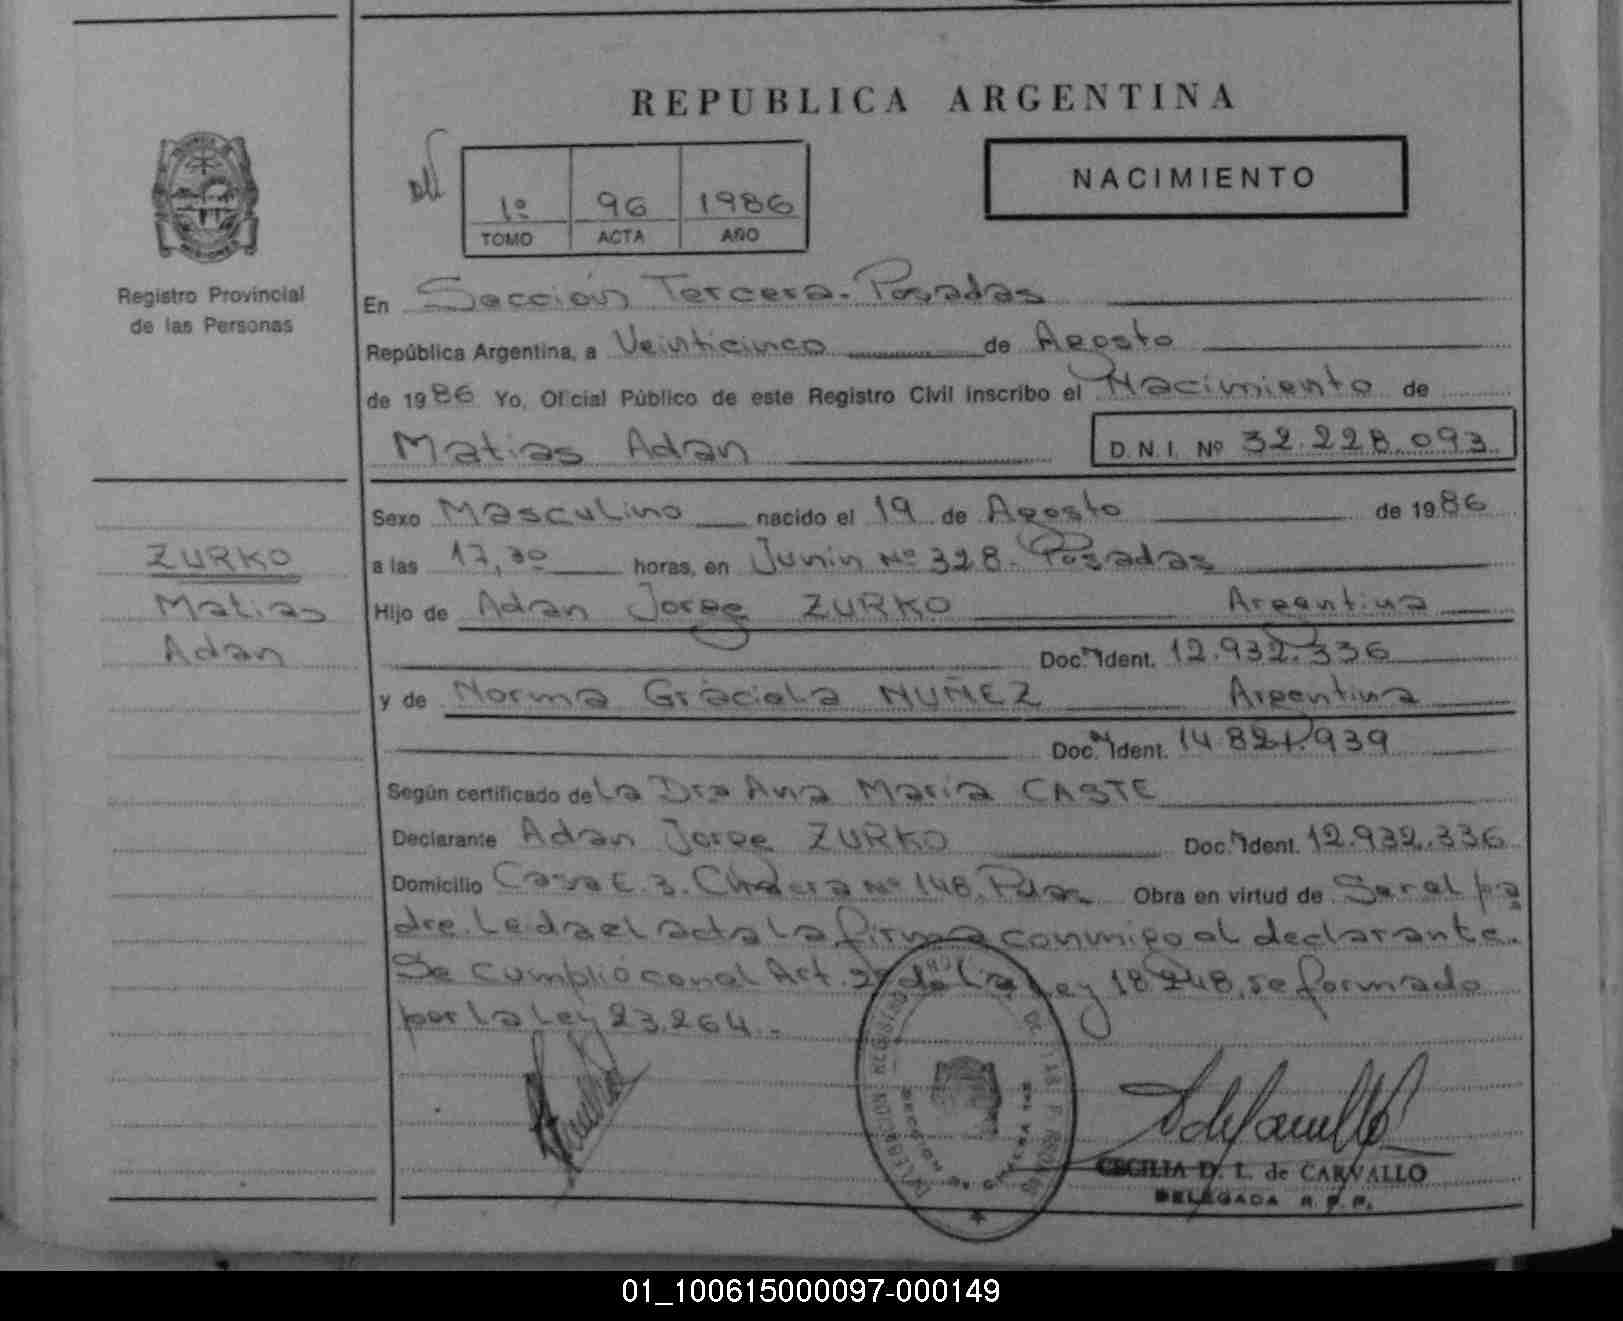 REPUBLICA ARGENTINA
NACIMIENTO
1º 96 1986
TOMO ACTA AÑO
Registro Provincial
de las Personas
En Sección Tercera - Posadas
República Argentina, a Veinticinco de Agosto
de 1986 Yo, Oficial Público de este Registro Civil inscribo el Nacimiento de
Matias Adan D.N.I. Nº 32.228.093
Sexo Masculino nacido el 19 de Agosto de 1986
ZURKO
Matias
Adan
a las 17,30 horas, en Junin Nº 328 - Posadas
Hijo de Adan Jorge ZURKO Argentina
Doc. Ident. 12.932.336
y de Norma Graciela NUÑEZ Argentina
Doc. Ident. 14.821.939
Según certificado de La Dra Ana Maria CASTE
Declarante Adan Jorge ZURKO Doc. Ident. 12.932.336
Domicilio Casa E. 3. Chacra Nº 148. Pdas. Obra en virtud de Ser el pa
dre. Leida el acta la firma conmigo el declarante.
Se cumplió con el Art. 2º de la Ley 18.248, reformado
por la Ley 23.264.-
CECILIA D. L. de CARVALLO
DELEGADA R. P. P.
01_100615000097-000149